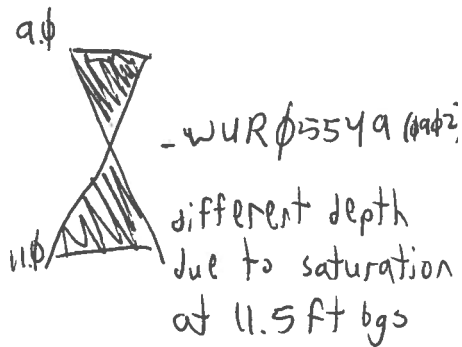 9.ø
- WURø5549 (ø9ø2)
different depth
11.ø due to saturation
at 11.5 ft bgs